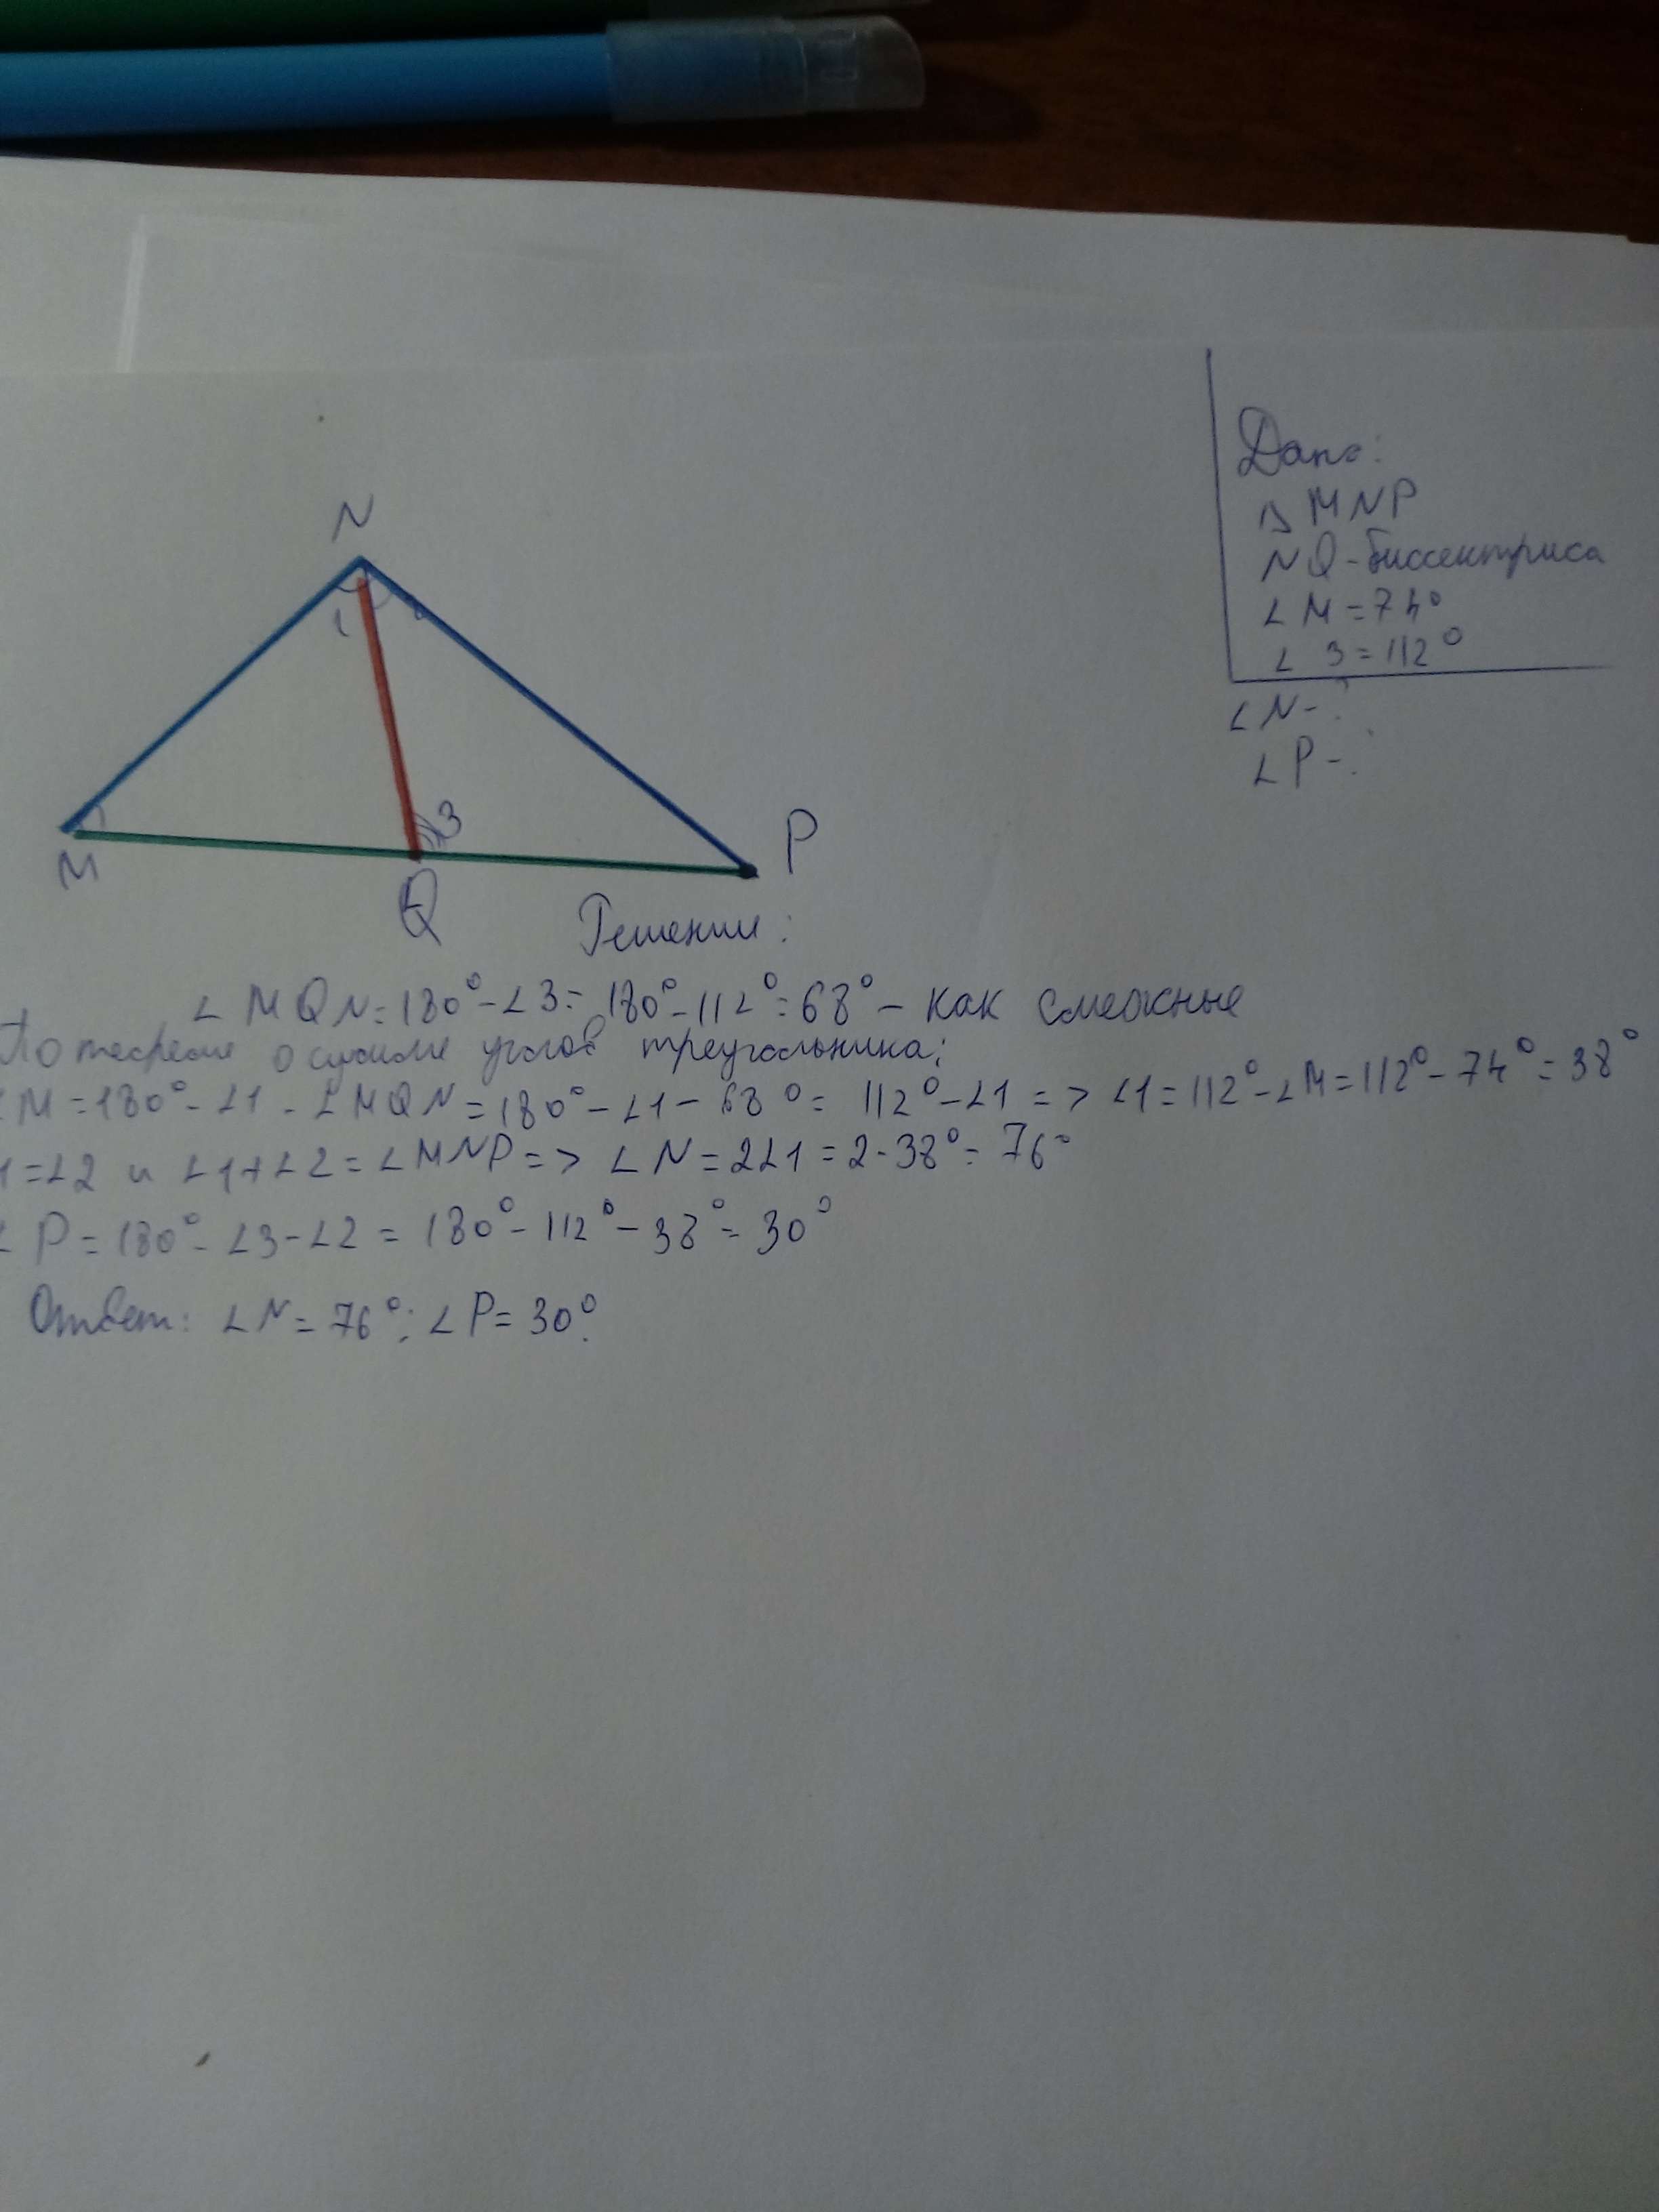 Дано:
Δ MNP
NQ - биссектриса
∠ M = 74°
∠ 3 = 112°
∠ N - ?
∠ P - ?
N
1
2
3
M
Q
P
Решение:
∠ MQN = 180° - ∠3 = 180° - 112° = 68° - как смежные
По теореме о сумме углов треугольника:
∠M = 180° - ∠1 - ∠MQN = 180° - ∠1 - 68° = 112° - ∠1 => ∠1 = 112° - ∠M = 112° - 74° = 38°
1 = ∠2 и ∠1 + ∠2 = ∠MNP => ∠N = 2∠1 = 2 · 38° = 76°
∠ P = 180° - ∠3 - ∠2 = 180° - 112° - 38° = 30°
Ответ: ∠N = 76°; ∠P = 30°.